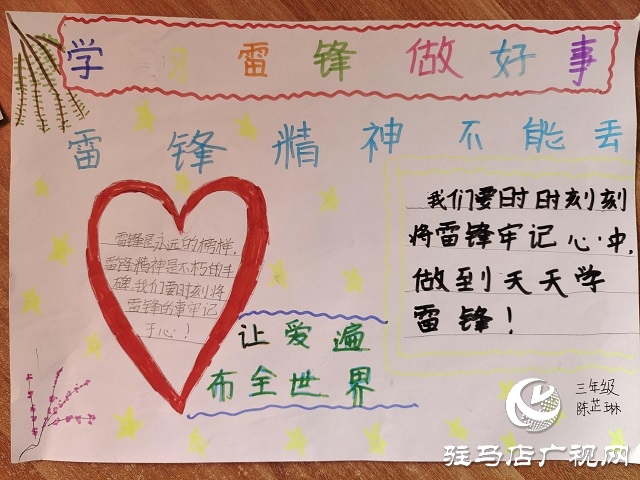 学习雷锋做好事
雷锋精神不能丢
雷锋是永远的榜样,
雷锋精神是不朽的丰
碑,我们要时刻将
雷锋的事牢记
于心!
我们要时时刻刻
将雷锋牢记心中,
做到天天学
雷锋!
让爱遍
布全世界
三年级
陈芷琳
驻马店广视网